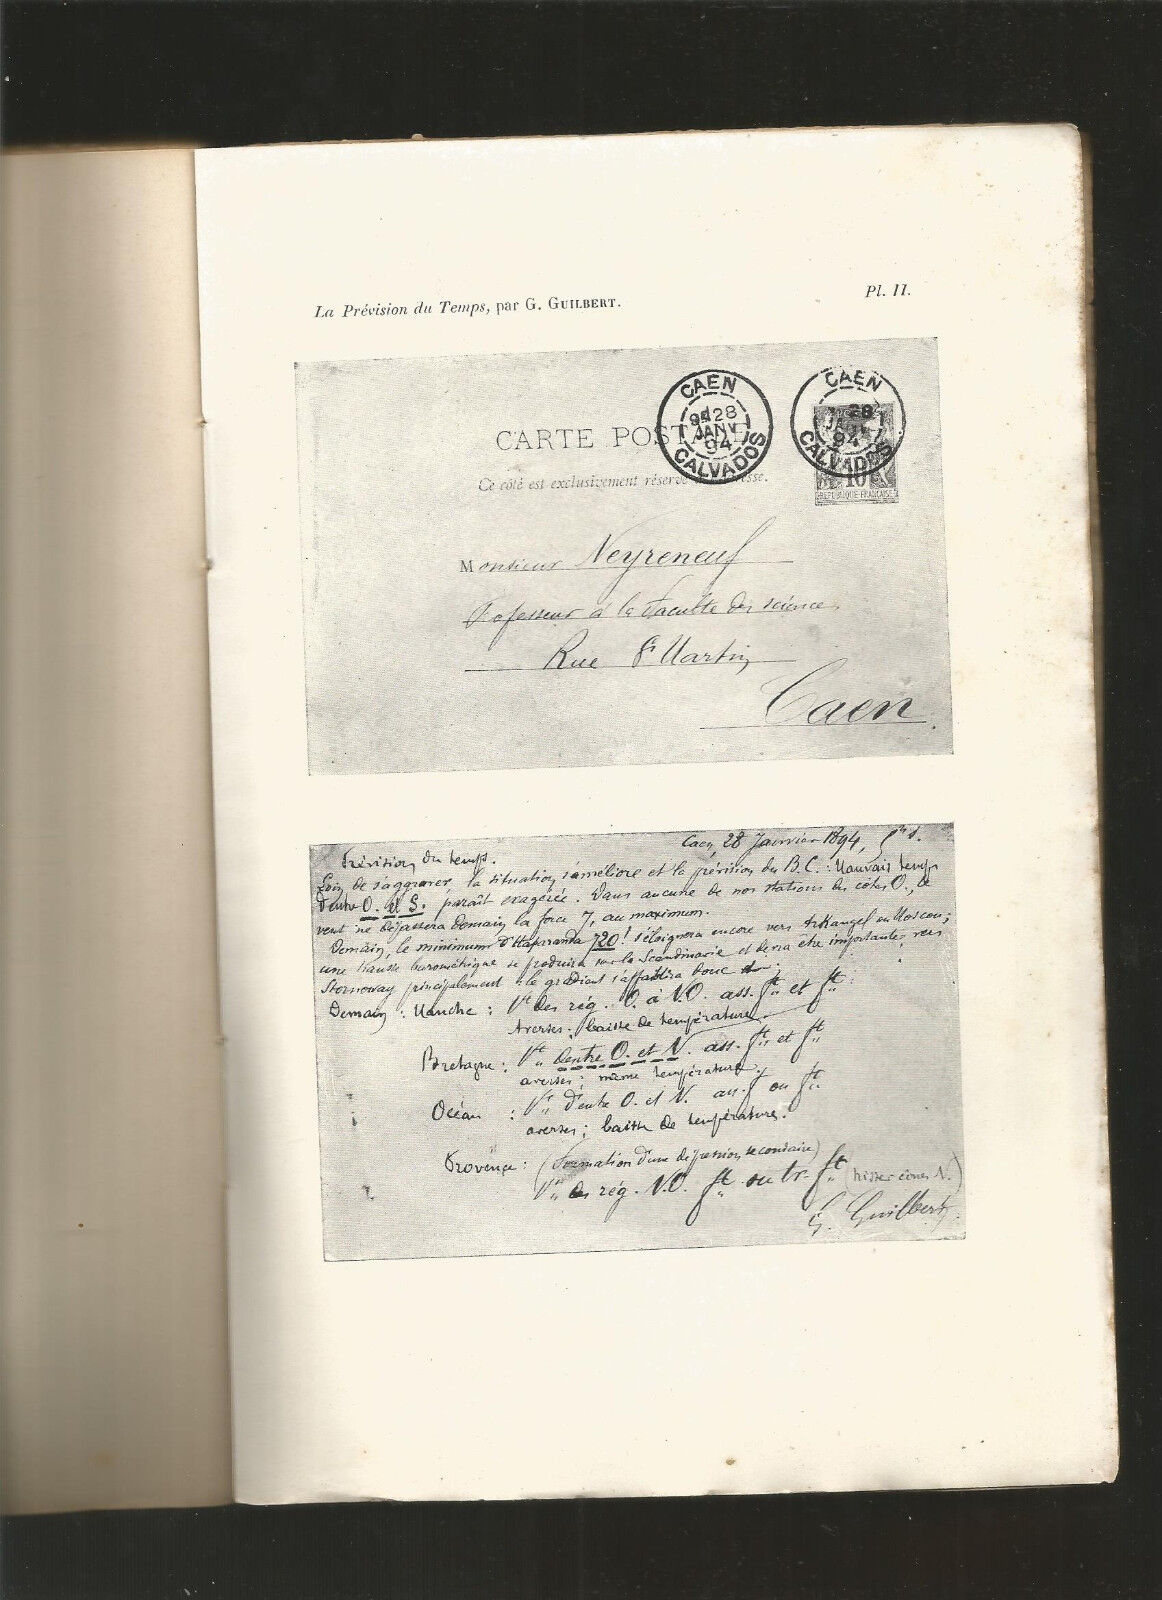 La Prévision du Temps, par G. GUILBERT.
Pl. II.
CAEN
28
JANV
94
CALVADOS
CAEN
28
94
CALVADOS
CARTE POSTALE
Ce côté est exclusivement réservé
10
REPUBLIQUE FRANCAISE
Monsieur Neyreneuf
Professeur à la Faculté des sciences
Rue St Martin
Caen
Caen, 28 Janvier 1894,
Prévision du temps.
Loin de s'aggraver, la situation s'améliore et la prévision du B.C. : Mauvais temps
d'entre O. et S. paraît exagérée. Dans aucune de nos stations des côtes O., le
vent ne dépassera demain la force 7, au maximum.
Demain, le minimum d'Haparanda 720 ! s'éloignera encore vers Arkangel ou Moscou ;
une hausse barométrique se produira sur la Scandinavie et devra être importante vers
Stornoway principalement : le gradient s'affaiblira donc
Demain : Manche : Vt des rég. O. à N.O. ass. ft et ft
Averses ; baisse de température
Bretagne : Vt d'entre O. et N. ass. ft et ft
averses ; même température
Océan : Vt d'entre O. et N. ass. f ou ft
averses ; baisse de température.
Provence : (Formation d'une dépression secondaire)
Vt des rég. N.O. ft ou tr. ft (hisser cônes N.)
G. Guilbert